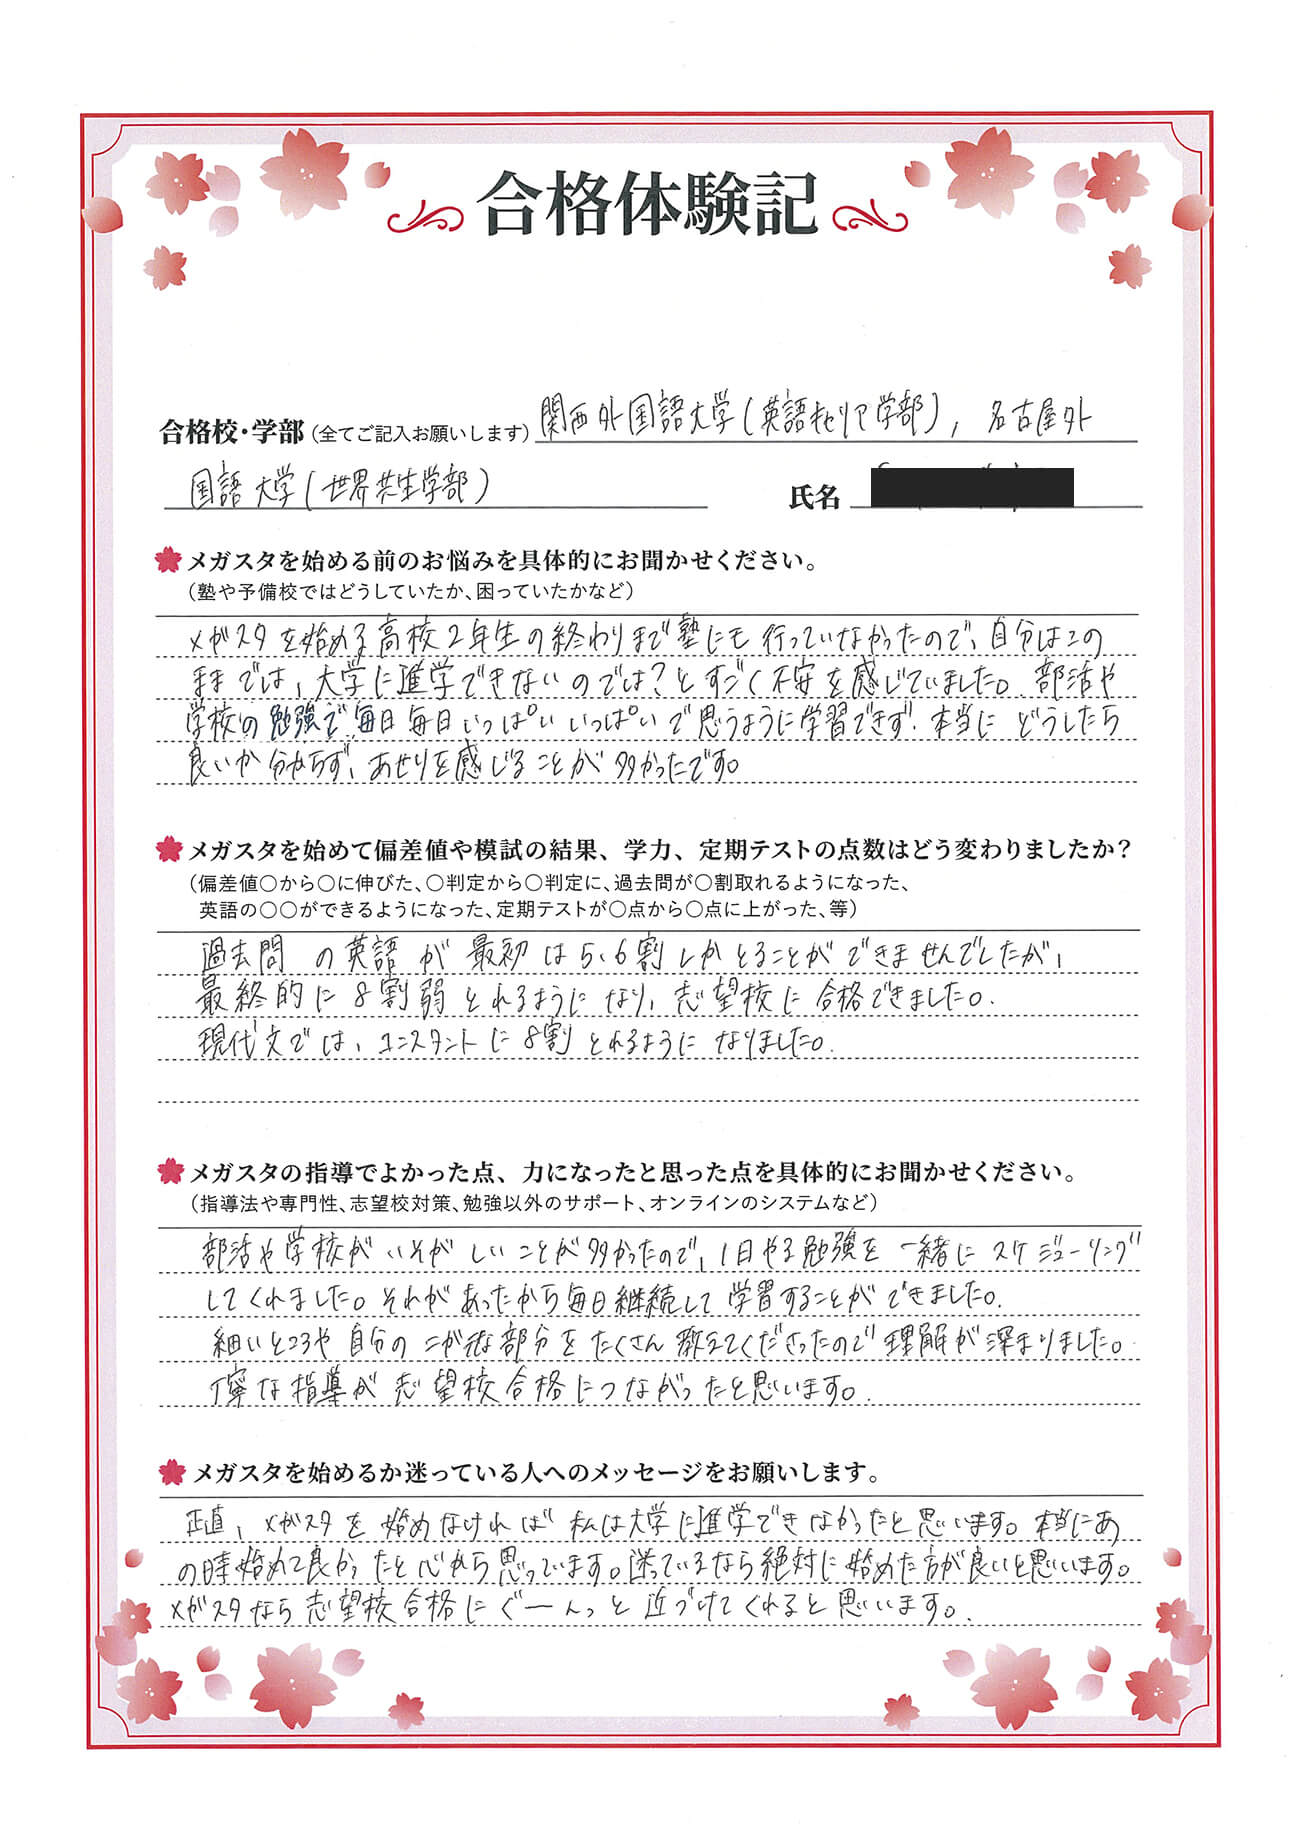 合格体験記
合格校・学部(全てご記入お願いします) 関西外国語大学(英語キャリア学部), 名古屋外
国語大学(世界共生学部) 氏名
メガスタを始める前のお悩みを具体的にお聞かせください。
(塾や予備校ではどうしていたか、困っていたかなど)
メガスタを始める高校2年生の終わりまで塾にも行っていなかったので、自分はこの
ままでは、大学に進学できないのでは?とすごく不安を感じていました。部活や
学校の勉強で毎日毎日いっぱいいっぱいで思うように学習できず、本当にどうしたら
良いか分からず、あせりを感じることが多かったです。
メガスタを始めて偏差値や模試の結果、学力、定期テストの点数はどう変わりましたか?
(偏差値○から○に伸びた、○判定から○判定に、過去問が○割取れるようになった、
英語の○○ができるようになった、定期テストが○点から○点に上がった、等)
過去問の英語が最初は5、6割しかとることができませんでしたが、
最終的に8割弱とれるようになり、志望校に合格できました。
現代文では、コンスタントに8割とれるようになりました。
メガスタの指導でよかった点、力になったと思った点を具体的にお聞かせください。
(指導法や専門性、志望校対策、勉強以外のサポート、オンラインのシステムなど)
部活や学校がいそがしいことが多かったので、1日やる勉強を一緒にスケジューリング
してくれました。それがあったから毎日継続して学習することができました。
細いところや自分のにが手な部分をたくさん教えてくださったので理解が深まりました。
丁寧な指導が志望校合格につながったと思います。
メガスタを始めるか迷っている人へのメッセージをお願いします。
正直、メガスタを始めなければ私は大学に進学できなかったと思います。本当にあ
の時始めて良かったと心から思っています。迷っているなら絶対に始めた方が良いと思います。
メガスタなら志望校合格にぐーんっと近づけてくれると思います。